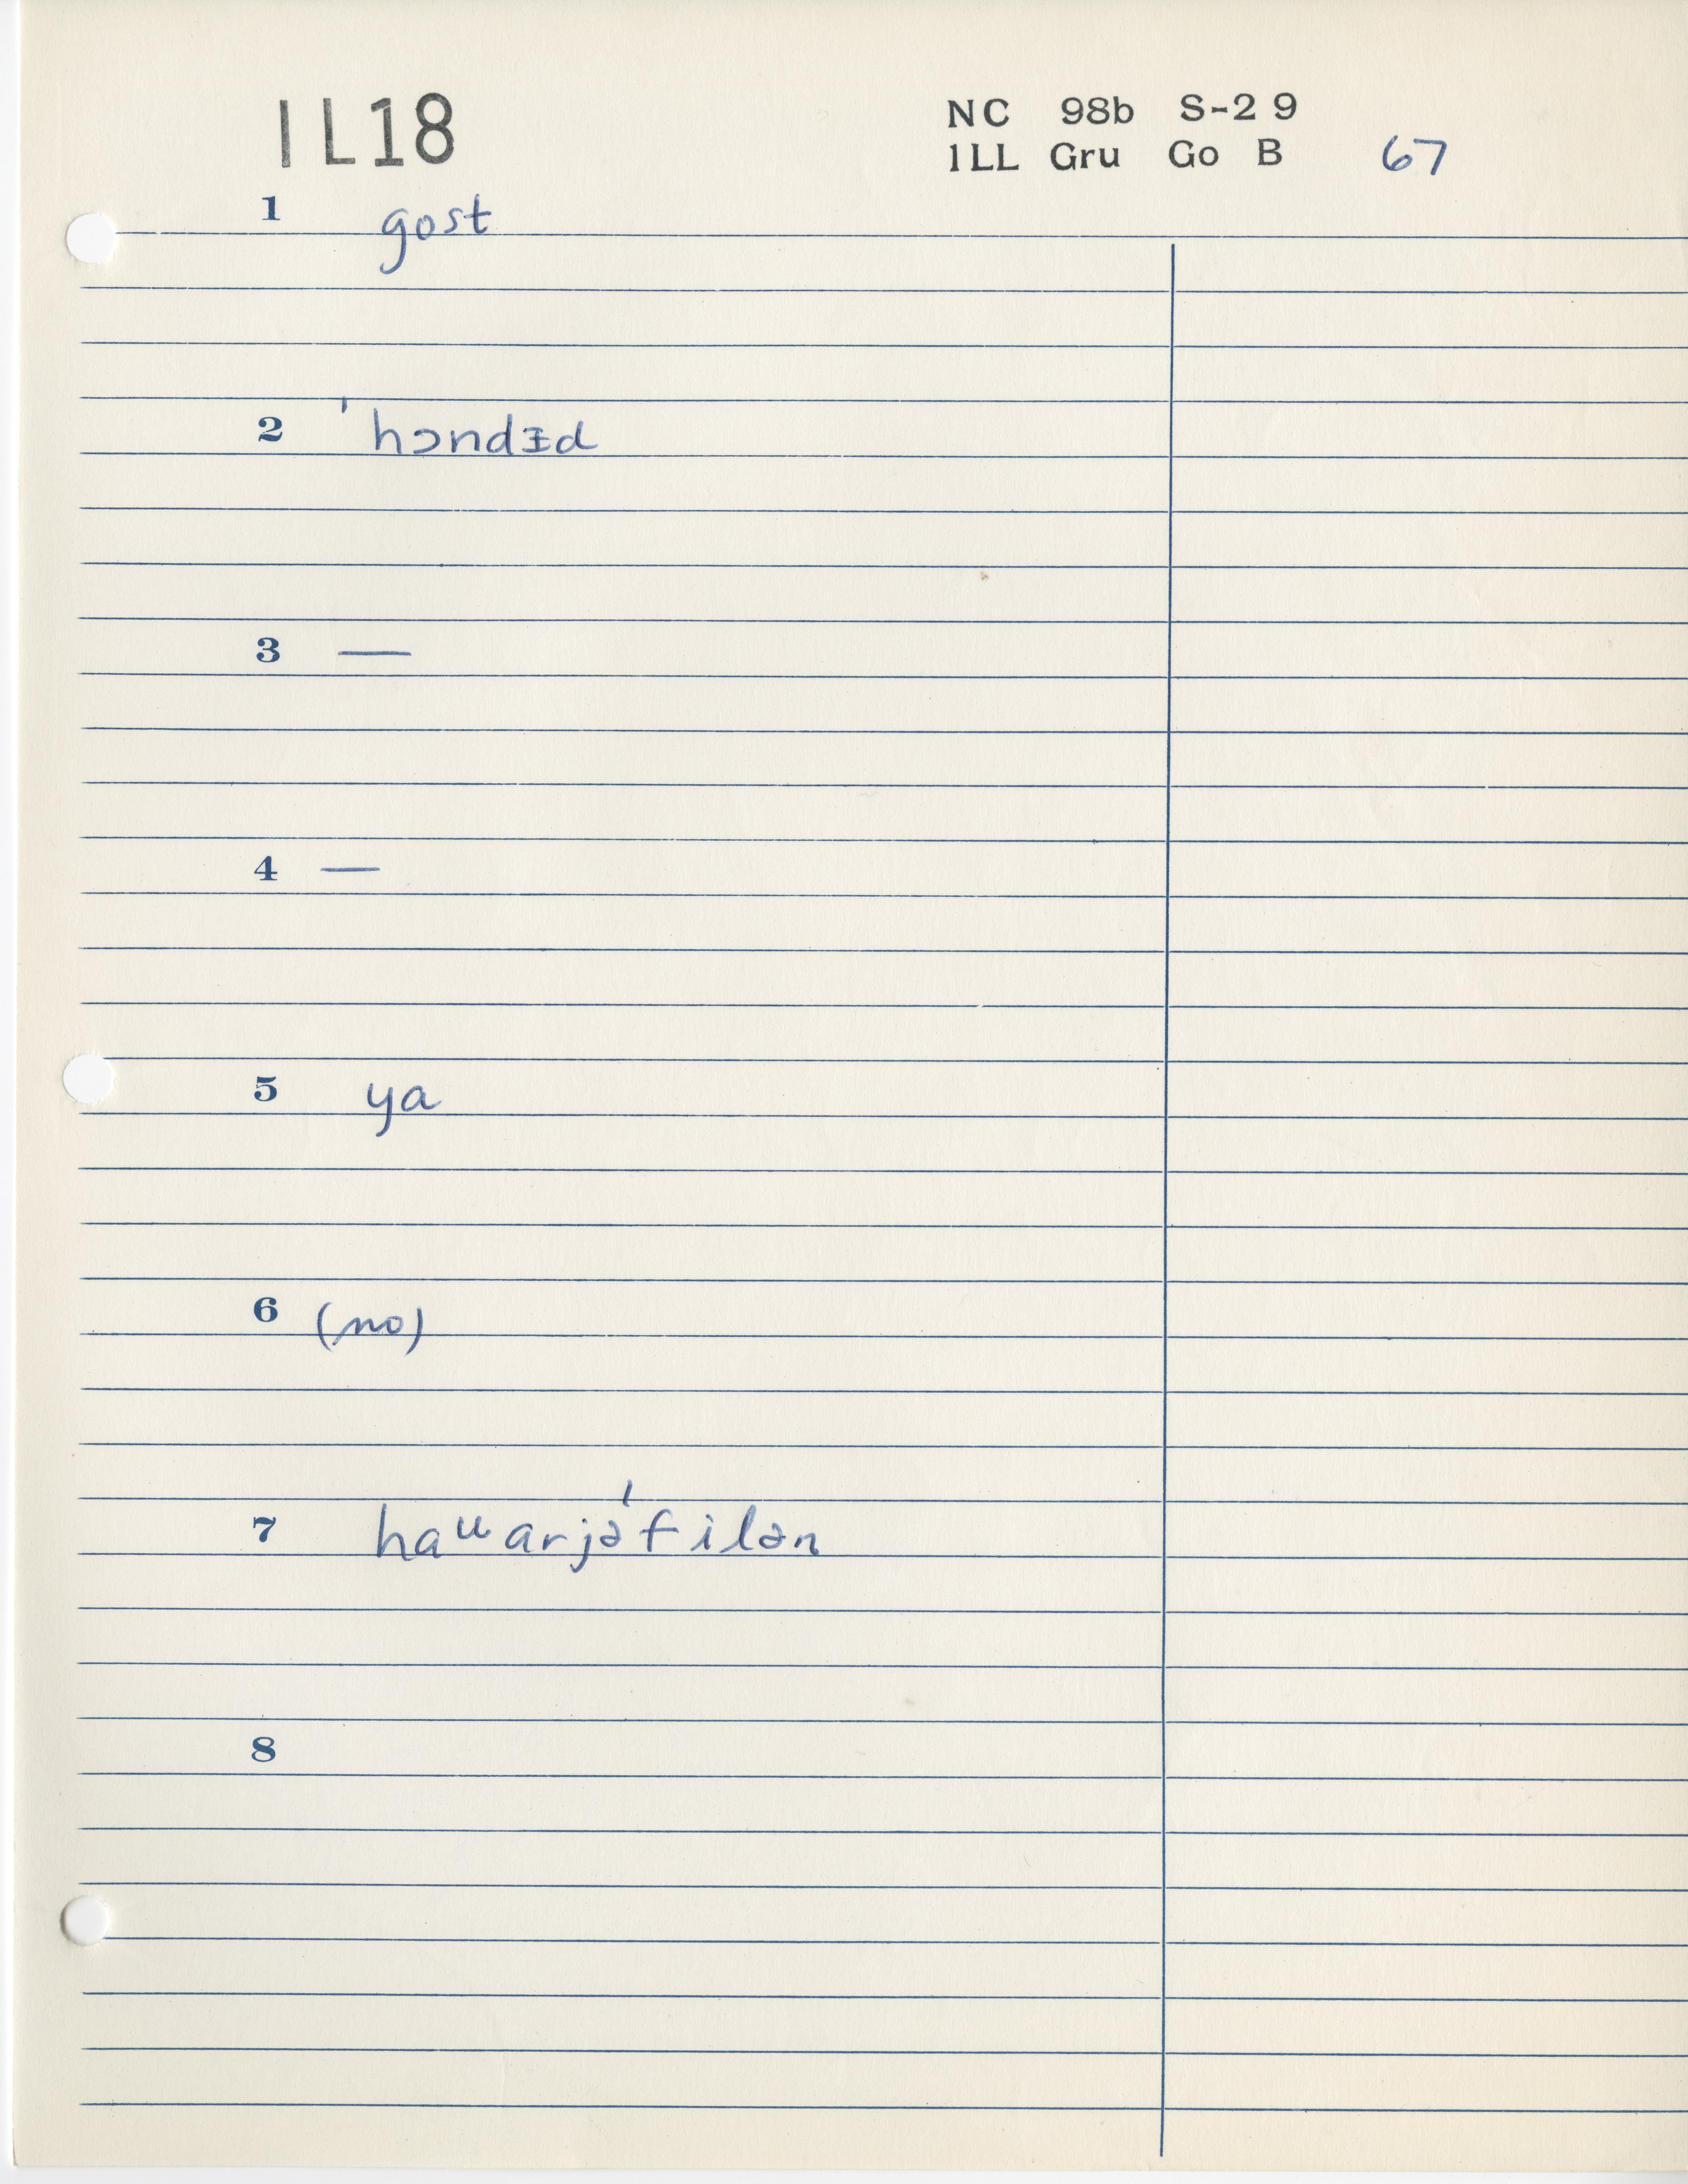 IL18
NC 98b S-29
ILL Gru Go B 67
1 gost
2 ˈhɔndɪd
3 —
4 —
5 ya
6 (no)
7 haᵚarjəˈfilən
8